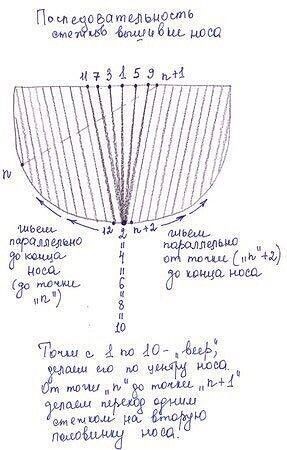 Последовательность
стежков вышивки носа
11 7 3 1 5 9 n+1
n
12 2 n+2
"
4
"
6
"
8
"
10
шьем
параллельно
до конца
носа
(до точки
„n")
шьем
параллельно
от точки („n"+2)
до конца носа
Точки с 1 по 10 - „веер",
делаем его по центру носа.
От точки „n" до точки „n+1"
делаем переход одним
стежком на вторую
половинку носа.